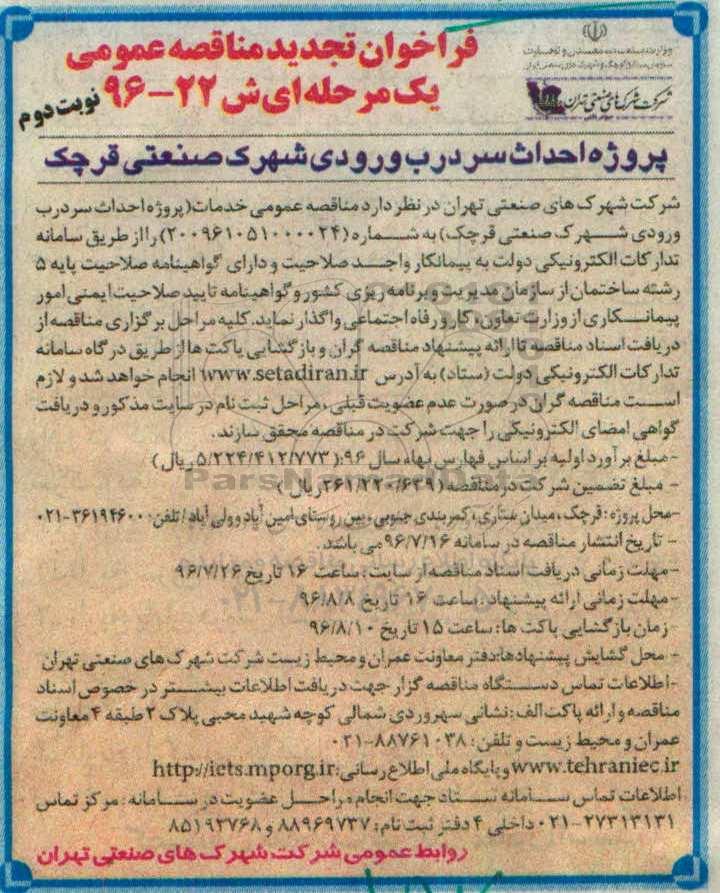 فراخوان تجدید مناقصه عمومی
یک مرحله ای ش ۲۲-۹۶
نوبت دوم
شرکت شهرک های صنعتی تهران
پروژه احداث سر درب ورودی شهرک صنعتی قرچک
شرکت شهرک های صنعتی تهران در نظر دارد مناقصه عمومی خدمات (پروژه احداث سر درب
ورودی شهرک صنعتی قرچک) به شماره (۲۰۰۹۶۱۰۵۱۰۰۰۰۲۴) را از طریق سامانه
تدارکات الکترونیکی دولت به پیمانکار واجد صلاحیت و دارای گواهینامه صلاحیت پایه ۵
رشته ساختمان از سازمان مدیریت و برنامه ریزی کشور و گواهینامه تایید صلاحیت ایمنی امور
پیمانکاری از وزارت تعاون، کار و رفاه اجتماعی واگذار نماید. کلیه مراحل برگزاری مناقصه از
دریافت اسناد مناقصه تا ارائه پیشنهاد مناقصه گران و بازگشایی پاکت ها از طریق درگاه سامانه
تدارکات الکترونیکی دولت (ستاد) به آدرس www.setadiran.ir انجام خواهد شد و لازم
است مناقصه گران در صورت عدم عضویت قبلی، مراحل ثبت نام در سایت مذکور و دریافت
گواهی امضای الکترونیکی را جهت شرکت در مناقصه محقق سازند.
-مبلغ برآورد اولیه بر اساس فهارس بهاء سال ۹۶: (۵/۲۲۴/۴۱۲/۷۷۳ ریال)
- مبلغ تضمین شرکت در مناقصه (۲۶۱/۲۲۰/۶۳۹ ریال)
-محل پروژه: قرچک، میدان ستاری، کمربندی جنوبی، بین روستای امین آباد و ولی آباد / تلفن: ۳۶۱۹۴۶۰۰-۰۲۱
- تاریخ انتشار مناقصه در سامانه ۹۶/۷/۱۶ می باشد.
-مهلت زمانی دریافت اسناد مناقصه از سایت: ساعت ۱۶ تاریخ ۹۶/۷/۲۶
-مهلت زمانی ارائه پیشنهاد: ساعت ۱۶ تاریخ ۹۶/۸/۸
-زمان بازگشایی پاکت ها: ساعت ۱۵ تاریخ ۹۶/۸/۱۰
- محل گشایش پیشنهادها: دفتر معاونت عمران و محیط زیست شرکت شهرک های صنعتی تهران
-اطلاعات تماس دستگاه مناقصه گزار جهت دریافت اطلاعات بیشتر در خصوص اسناد
مناقصه و ارائه پاکت الف: نشانی سهروردی شمالی کوچه شهید محبی پلاک ۲ طبقه ۴ معاونت
عمران و محیط زیست و تلفن: ۸۸۷۶۱۰۳۸-۰۲۱
www.tehraniec.ir و پایگاه ملی اطلاع رسانی: http://iets.mporg.ir
اطلاعات تماس سامانه ستاد جهت انجام مراحل عضویت در سامانه: مرکز تماس
۲۷۳۱۳۱۳۱-۰۲۱ داخلی ۴ دفتر ثبت نام: ۸۸۹۶۹۷۳۷ و ۸۵۱۹۳۷۶۸
روابط عمومی شرکت شهرک های صنعتی تهران